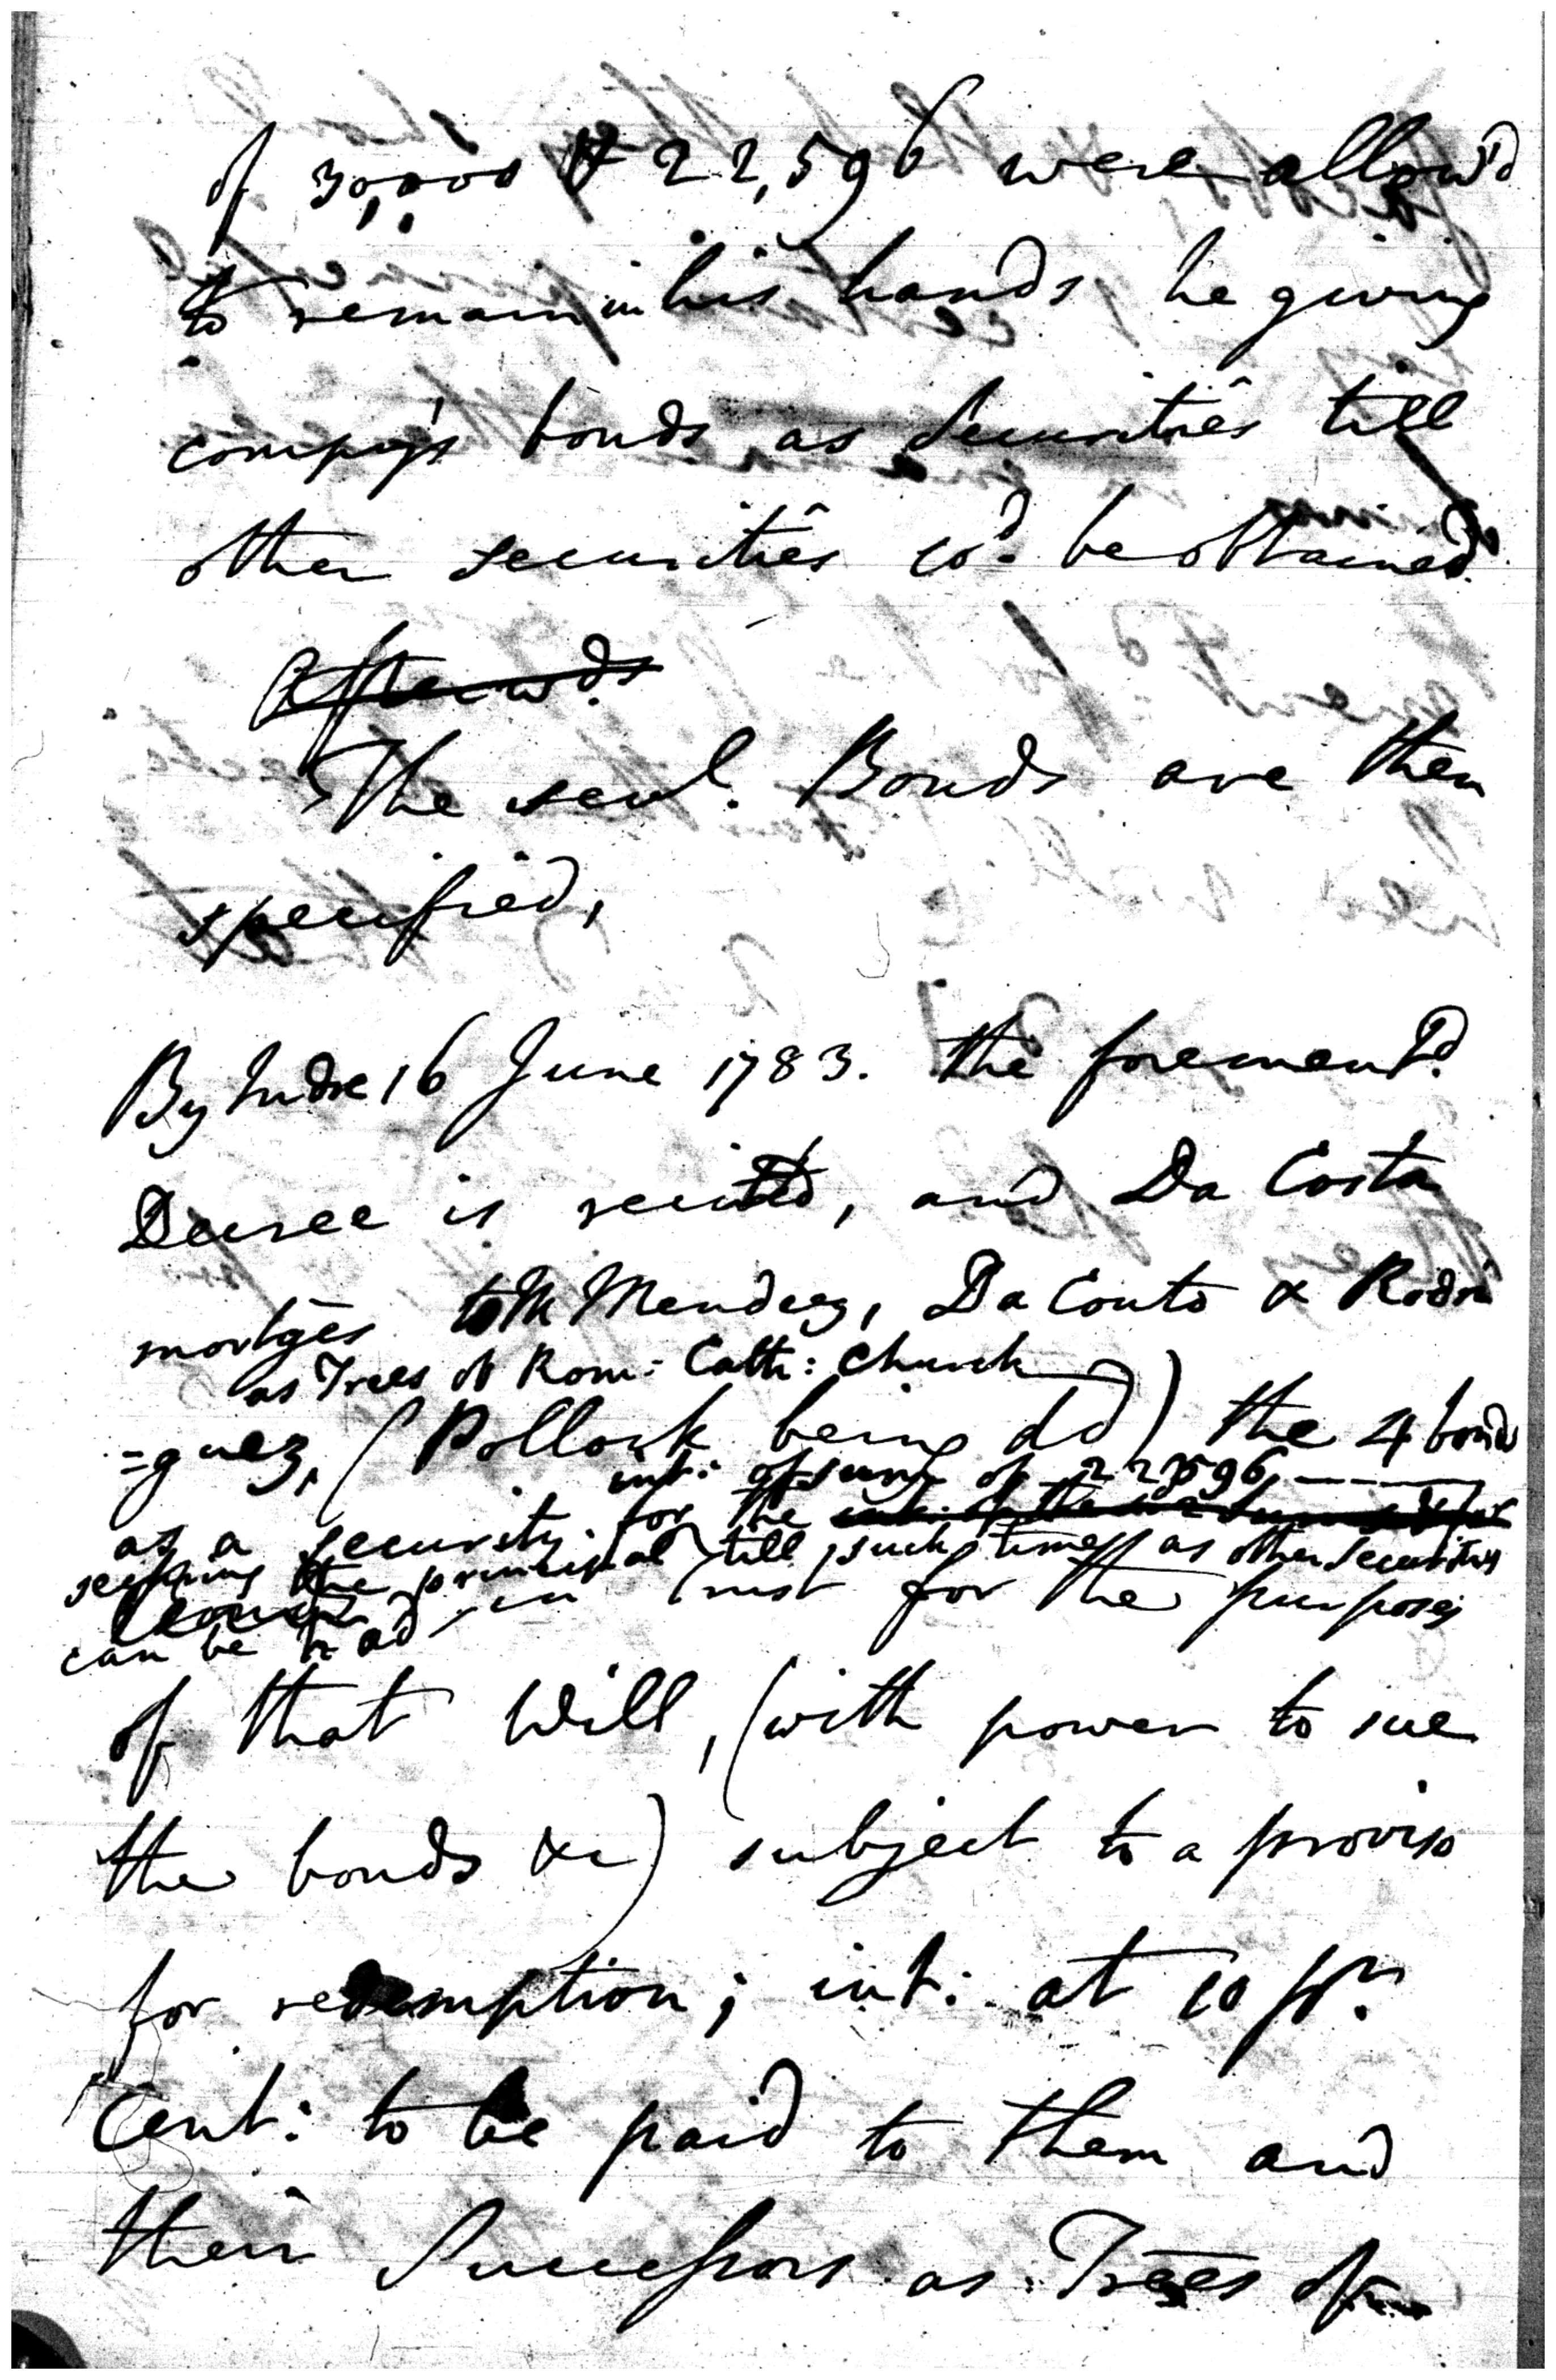 of 30,000 & 22,596 were allow'd
to remain in his hands he giving
compy's bonds as Securities till
other securities co.d be obtained.
Afterwds.
The sevl. Bonds are then
specified,
By Indre 16 June 1783. the forement.d
Decree is recited, and Da Costa
mortges to M Mendez, Da Couto & Rodri
as Trees of Rom: Cath: Church
=guez, (Pollock being dd) the 4 bonds
int: of sum of 22596
as a security for the
securing the principal till such time as other securities
can be had in trust for the purposes
of that Will, (with power to sue
the bonds &c) subject to a proviso
for redemption; int: at 10 pr.
Cent: to be paid to them and
their Successors as Trees of